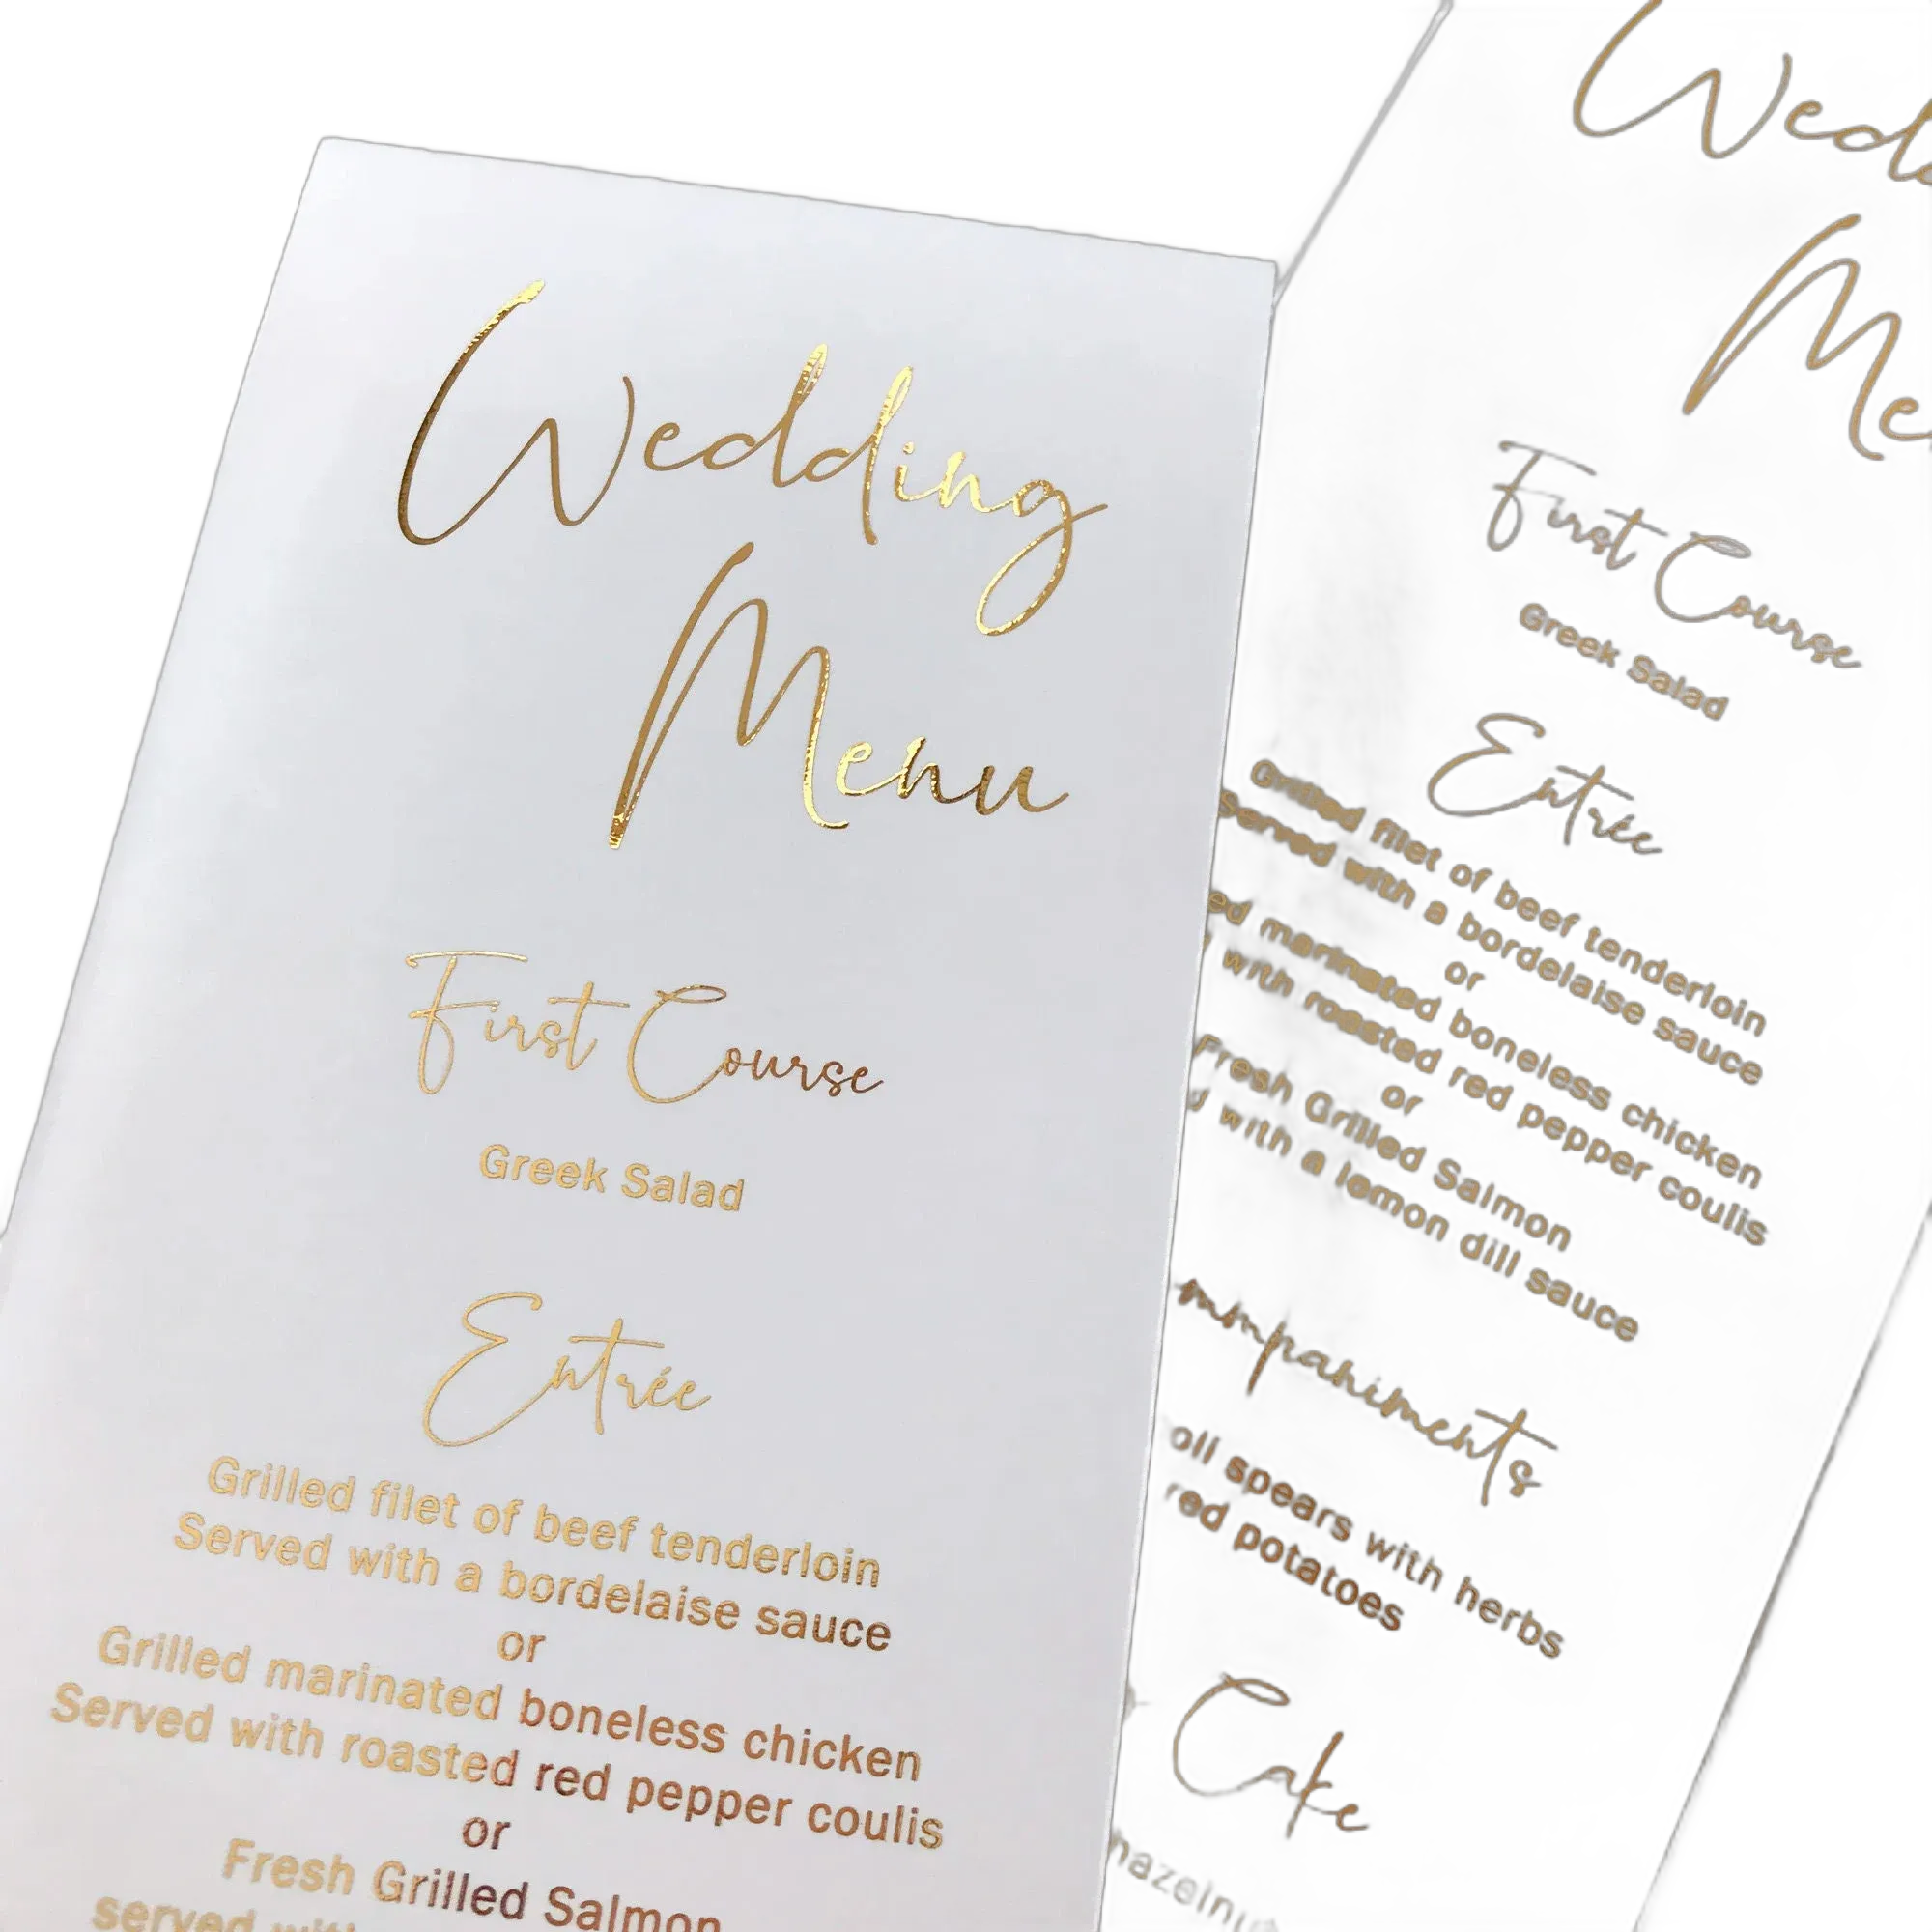 Wedding
Menu
First Course
Greek Salad
Entrée
Grilled filet of beef tenderloin
Served with a bordelaise sauce
or
Grilled marinated boneless chicken
Served with roasted red pepper coulis
or
Fresh Grilled Salmon
served
First Course
Greek Salad
Entrée
Grilled filet of beef tenderloin
Served with a bordelaise sauce
or
marinated boneless chicken
with roasted red pepper coulis
or
Fresh Grilled Salmon
with a lemon dill sauce
spears with herbs
red potatoes
Cake